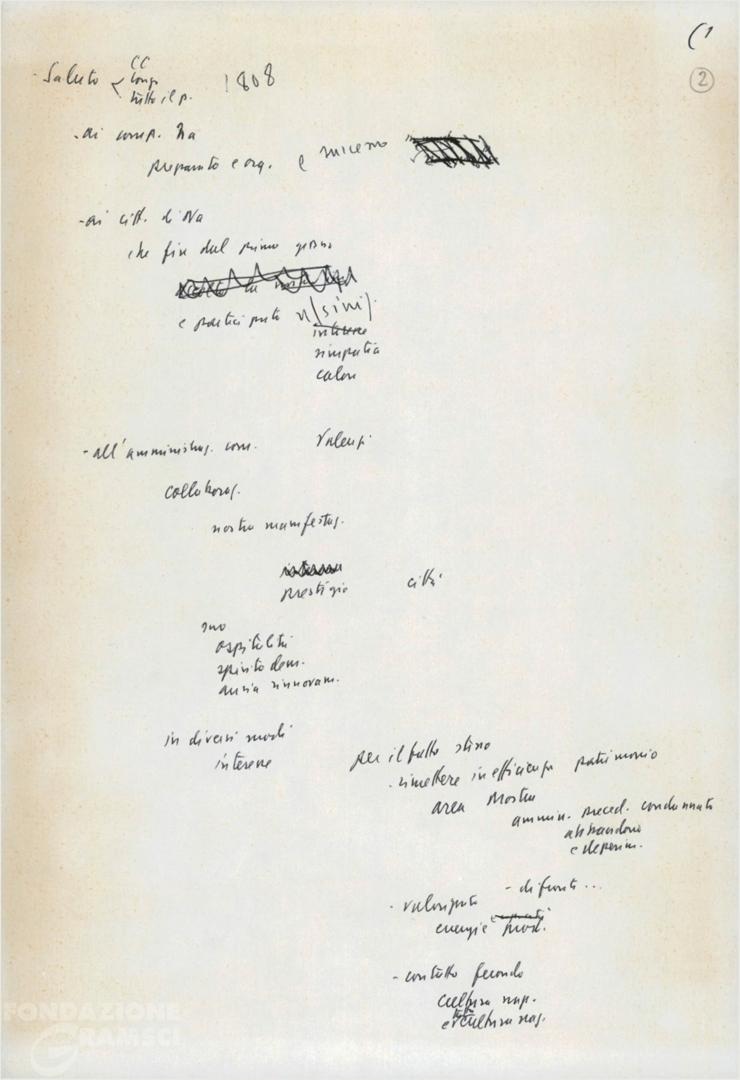 (1
2
- Saluto CC
Longo
tutto il p.
1808
- ai comp. Na
preparato e org. e successo
- ai citt. di Na
che fin dal primo giorno
e partecipato
interesse
simpatia
calore
- all'amministraz. com. Valenzi
collaboraz.
nostra manifestaz.
prestigio città
suo
ospitalità
spirito dem.
ansia rinnovam.
in diversi modi
interesse
per il fatto stesso
- rimettere in efficienza patrimonio
area Mostra
ammin. preced. condannato
abbandono
e deperim.
- difronte...
- valorizzato
energie prod.
- contatto fecondo
cultura nap.
e cultura naz.
FONDAZIONE
GRAMSCI